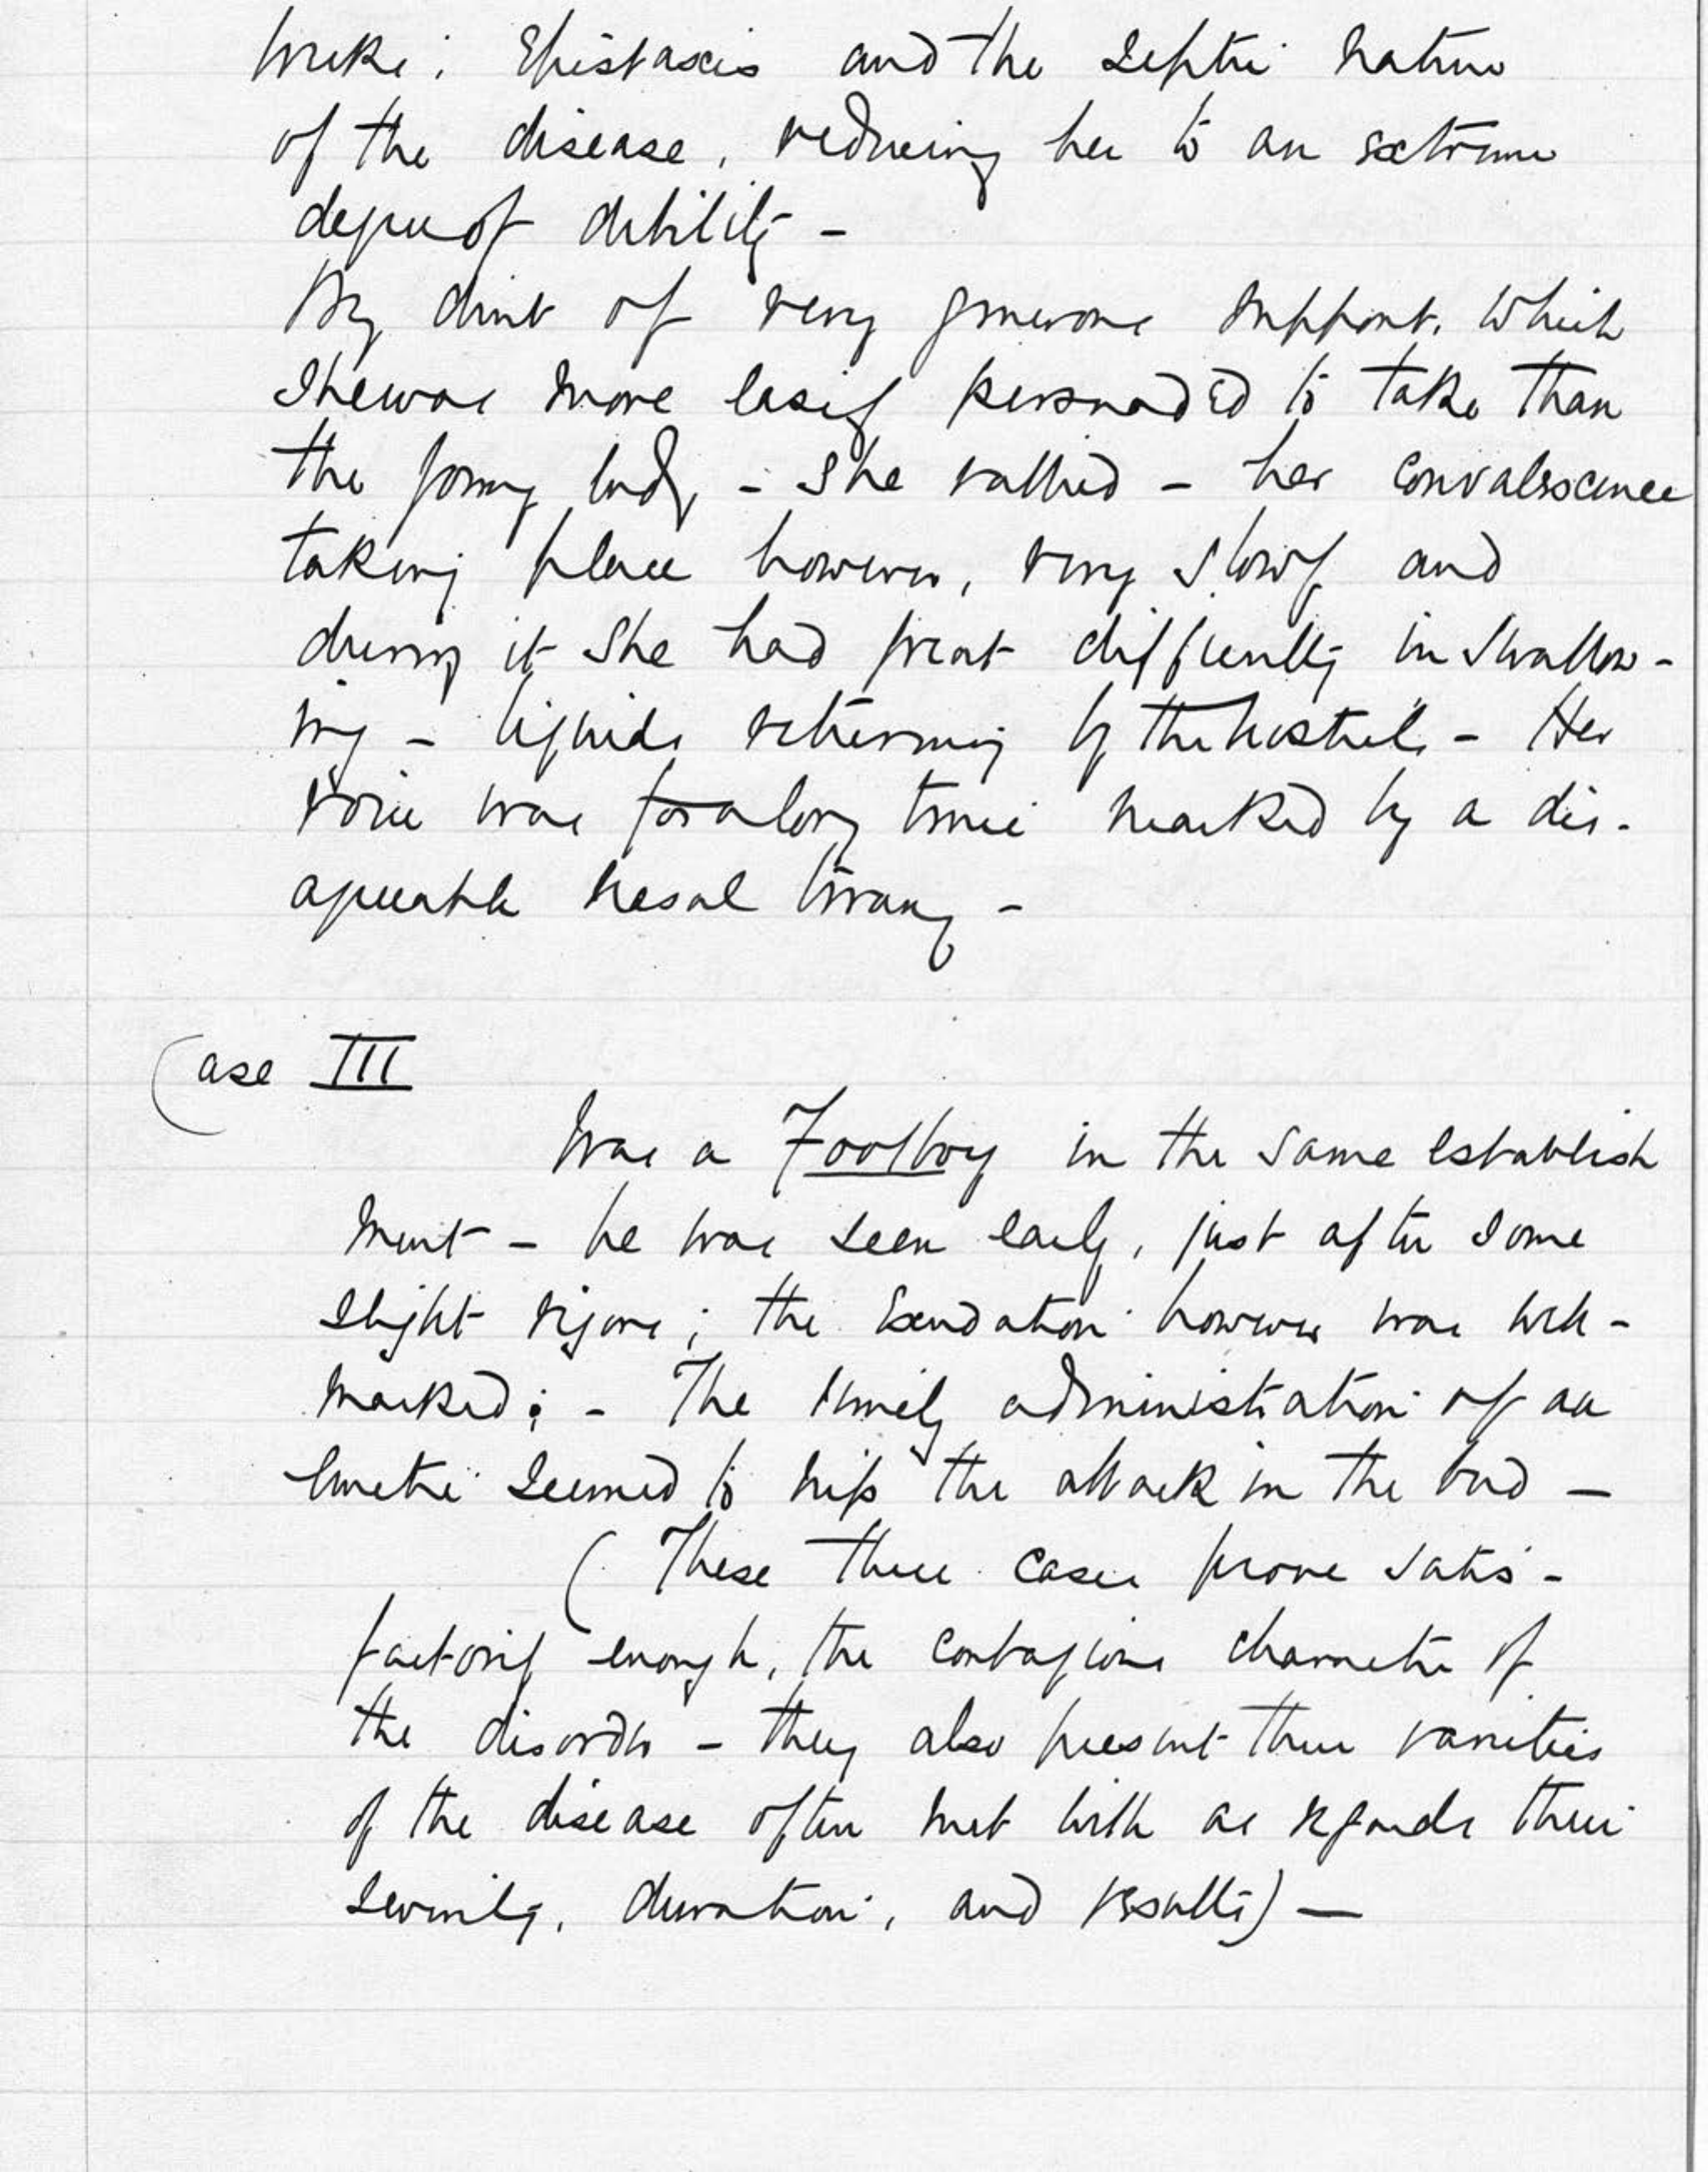 weeks; Epistaxis and the septic nature
of the disease, reducing her to an extreme
degree of debility -
By dint of very generous support, which
she was more easily persuaded to take than
the young lady, - she rallied - her convalescence
taking place however, very slowly and
during it she had great difficulty in swallow-
ing - liquids returning by the nostrils - Her
voice was for a long time marked by a dis-
agreeable nasal twang -
Case III
Was a Footboy in the same establish
ment - he was seen early, just after some
slight rigors; the Exudation however was well-
marked; - The timely administration of an
Emetic seemed to nip the attack in the bud -
(These three cases prove satis-
factorily enough, the contagious character of
the disorder - they also present three varieties
of the disease often met with as regards their
severity, duration, and results) -